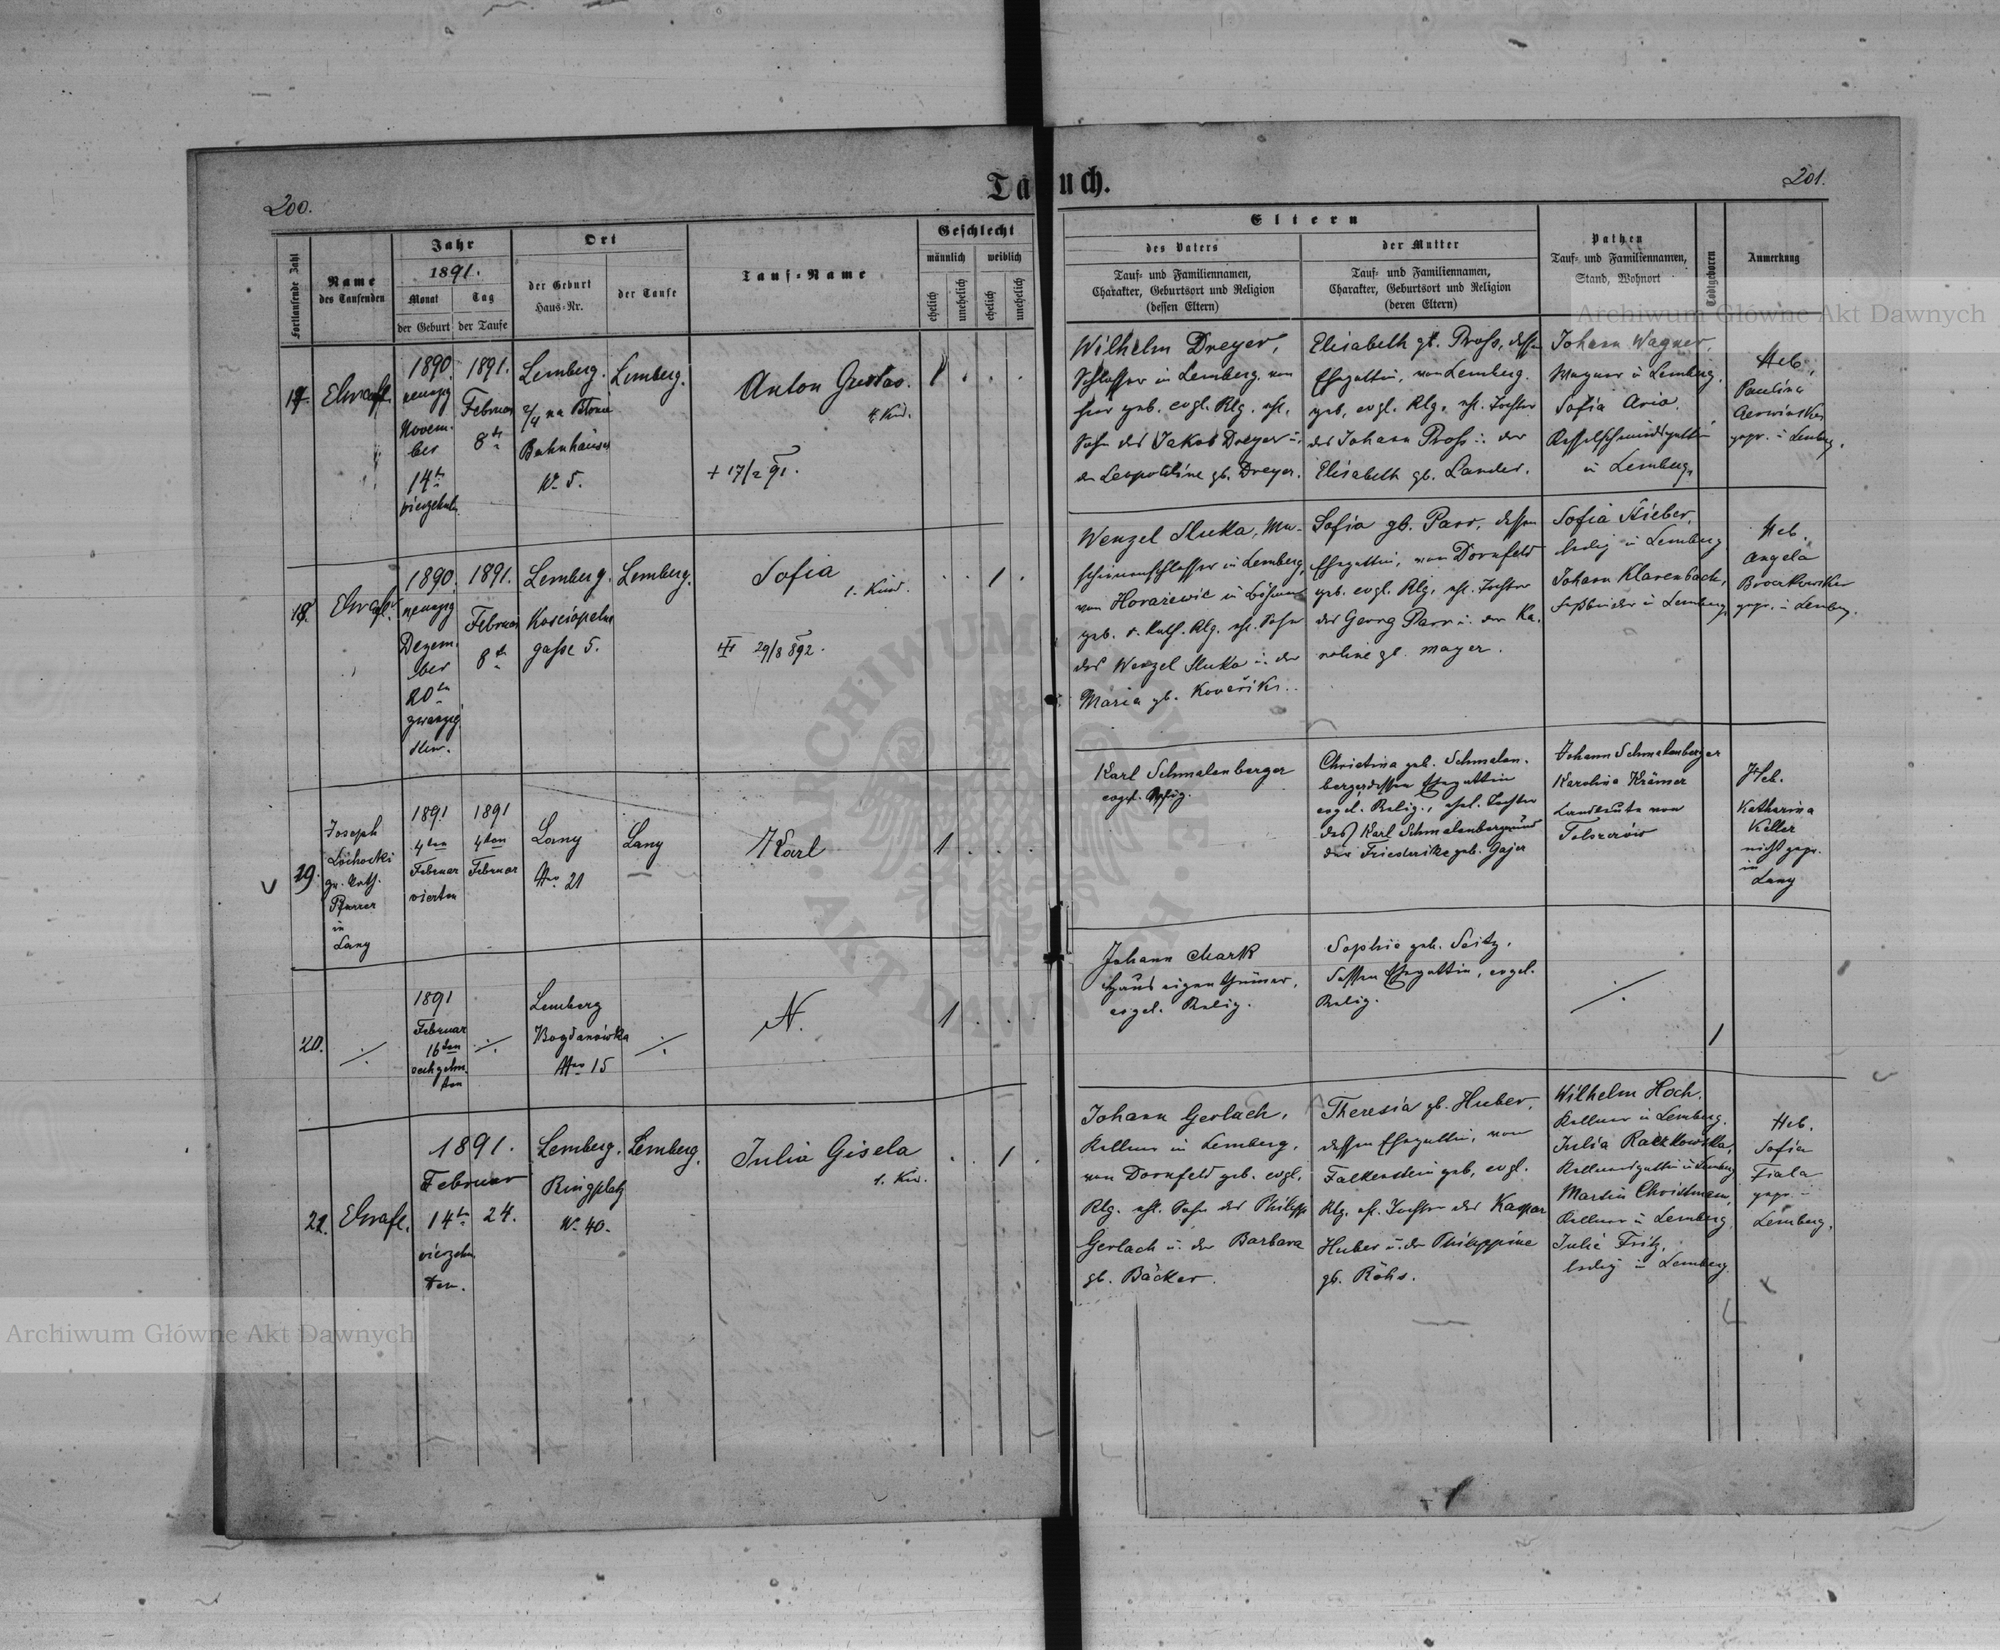 200.
Ta
uch.
201.
Fortlaufende Zahl
Name
des Taufenden
Jahr
1891.
Monat
Tag
der Geburt
der Taufe
Ort
der Geburt
Haus-Nr.
der Taufe
Tauf-Name
Geschlecht
männlich
weiblich
ehelich
unehelich
ehelich
unehelich
Eltern
des Vaters
Tauf- und Familiennamen,
Charakter, Geburtsort und Religion
(dessen Eltern)
der Mutter
Tauf- und Familiennamen,
Charakter, Geburtsort und Religion
(deren Eltern)
Pathen
Tauf- und Familiennamen,
Stand, Wohnort
Todtgeboren
Anmerkung
Archiwum Główne Akt Dawnych
17.
1890.
neunzig
Novem-
ber
14te
vierzehn
1891.
Februar
8te
Lemberg.
na Błonie
Bahnhäuser
No 5.
Lemberg.
Anton Gustav.
4. Kind.
+ 17/2 91.
1
Wilhelm Dreyer,
Schlosser in Lemberg, von
hier geb. evgl. Rlg. ehl.
Sohn des Jakob Dreyer u.
der Leopoldine gb. Dreyer.
Elisabeth gb. Pross, dessen
Ehegattin, von Lemberg
geb. evgl. Rlg. ehl. Tochter
des Johann Pross u. der
Elisabeth gb. Lander.
Johann Wagner,
Wagner in Lemberg.
Sofia
Kesselschmiedsgattin
in Lemberg.
Heb.
Paulina
gepr. in Lemberg.
18.
1890.
neunzig
Dezem-
ber
20ten
zwanzig
sten.
1891.
Februar
8te
Lemberg.
gasse 5.
Lemberg.
Sofia
1. Kind.
29/8 892.
1
Wenzel Sluka, Ma-
schinenschlosser in Lemberg,
von in Böhmen
geb. r. kath. Rlg. ehl. Sohn
des Wenzel Sluka u. der
Maria gb.
Sofia gb. Parr, dessen
Ehegattin, von Dornfeld
geb. evgl. Rlg. ehl. Tochter
des Georg Parr u. der Ka-
roline gb. Mayer.
Sofia
ledig in Lemberg
Johann Klarenbach,
in Lemberg.
Heb.
Angela
gepr. in Lemberg.
19.
Joseph
gr. kath.
Pfarrer
in
Lany
1891
4ten
Februar
vierten
1891
4ten
Februar
Lany
Nro 21
Lany
Karl
1
Karl Schmalenberger
evgel. Relig.
Christina geb. Schmalen-
berger, dessen Ehegattin
evgel. Relig., ehel. Tochter
des Karl Schmalenberger und
der Friederike geb. Gajer
Johann Schmalenberger
Karolina Krämer
Landleute von
Heb.
Katharina
Keller
nicht gepr.
in
Lany
20.
1891
Februar
16ten
sechzehn-
ten
Lemberg
Bogdanówka
Nro 15
N.
1
Johann Mark
Hauseigenthümer,
evgel. Relig.
Sophie geb. Seitz,
dessen Ehegattin, evgel.
Relig.
1
21.
1891.
Februar
14te
vierzehn
ten.
24.
Lemberg.
Ringplatz
No 40.
Lemberg.
Julia Gisela
1. Kind.
1
Johann Gerlach,
Kellner in Lemberg,
von Dornfeld geb. evgl.
Rlg. ehl. Sohn des Philipp
Gerlach u. der Barbara
gb. Bäcker.
Theresia gb. Huber,
dessen Ehegattin, von
Falkenstein geb. evgl.
Rlg. ehl. Tochter des Kaspar
Huber u. der Philippine
gb. Röhs.
Wilhelm Hoch,
Kellner in Lemberg.
Julia Raczkowska,
Kellnersgattin in Lemberg
Martin Christmann,
Kellner in Lemberg,
Julie Fritz,
ledig in Lemberg.
Heb.
Sofia
Fiala
gepr. in
Lemberg.
Archiwum Główne Akt Dawnych